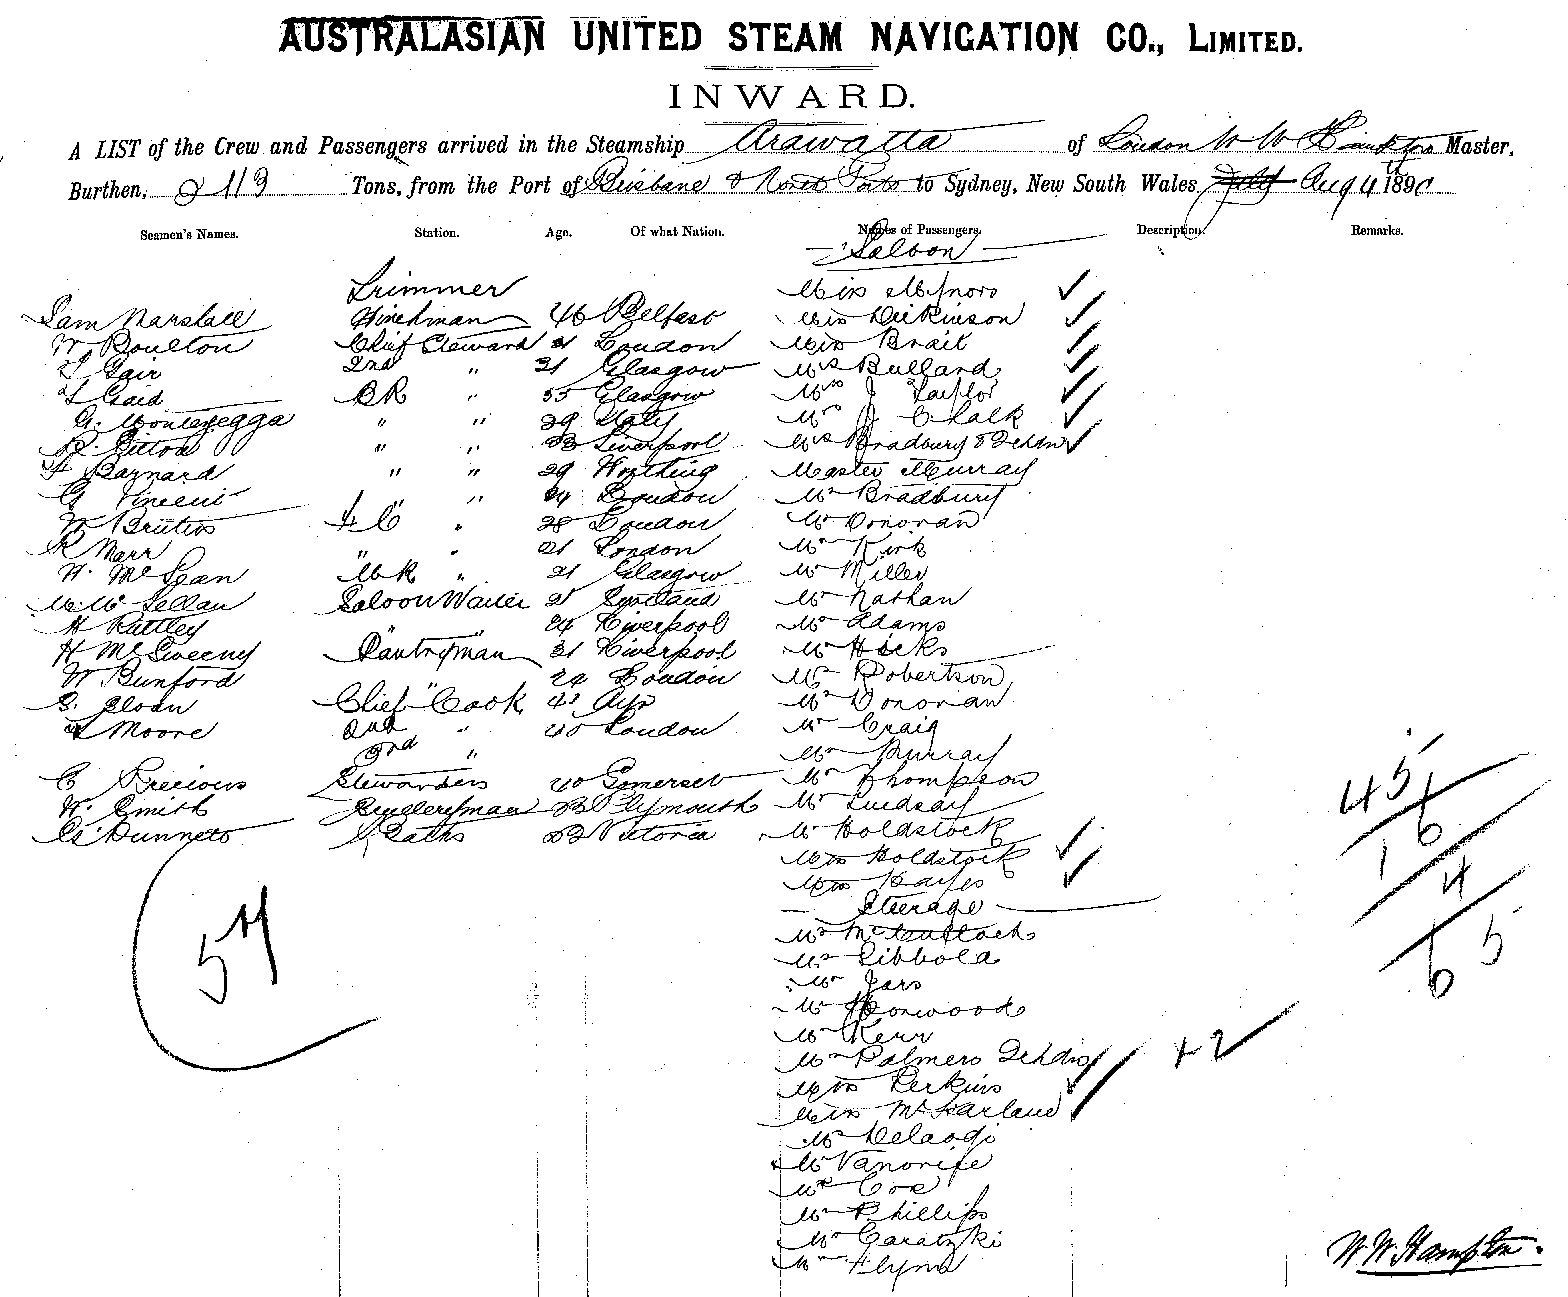 AUSTRALASIAN UNITED STEAM NAVIGATION CO., LIMITED.
INWARD.
A LIST of the Crew and Passengers arrived in the Steamship Arawatta of London W W Hampton Master,
Burthen, 2113 Tons, from the Port of Brisbane & North Ports to Sydney, New South Wales Aug 4 1890
Seamen's Names. Station. Age. Of what Nation. Names of Passengers. Description. Remarks.
Saloon
Trimmer Miss Mynors
Sam Marshall Winchman 46 Belfast Miss Dickinson
W Boulton Chief Steward 31 London Miss Brait
T Gair 2nd " 31 Glasgow Mrs Bullard
T Caid BR " 35 Glasgow Mrs J Taylor
G. Montazegga " " 29 Italy Mrs J Chalk
R Sitton " " 33 Liverpool Mrs Bradbury & 2 chldn
F Baynard " " 29 Worthing Master Murray
G Vincent " 24 London Mr Bradbury
W Brutin F C " 28 London Mr Donovan
R Marr " " 21 London Mr Kirk
W. McLean MR " 21 Glasgow Mr Miller
M McLellan Saloon Waiter Mr Nathan
H Rattley " " 24 Liverpool Mr Adams
H McSweeney Pantryman 31 Liverpool Mr Hicks
W Bunford " 24 London Mr Robertson
S. Sloan Chief Cook 41 Ayr Mr Donovan
T Moore 2nd " 40 London Mr Craig
3rd " Mr Murray
C Precious Stewardess 40 Somerset Mr Thompson
W. Smith 23 Plymouth Mr Lindsay
Cs Dunnets Baths 23 Victoria Mr Holdstock
Mrs Holdstock
Mrs Hayes
Steerage
Mr McCulloch
Mr Sibbold
Mr Jars
Mr Horwood
Mr Kerr
Mrs Palmers 2 chldn
+2
Mrs Perkins
Miss McFarland
Mr Delaogi
Mr Vanorife
Mr Cox
Mr Phillips
Mr Garatzki
Mr Flynn
57
45
6
1
4
6 5
W. W. Hampton.